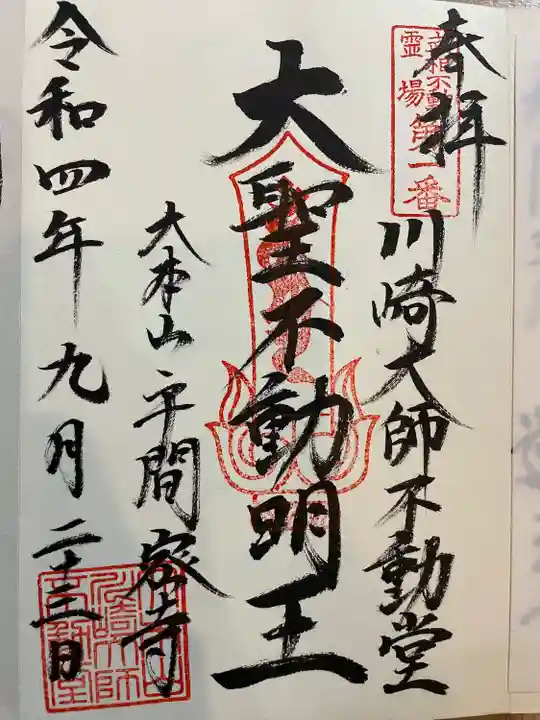 奉拝
武相不動
霊場 第一番
川崎大師不動堂
大聖不動明王
大本山平間寺
令和四年九月二十三日